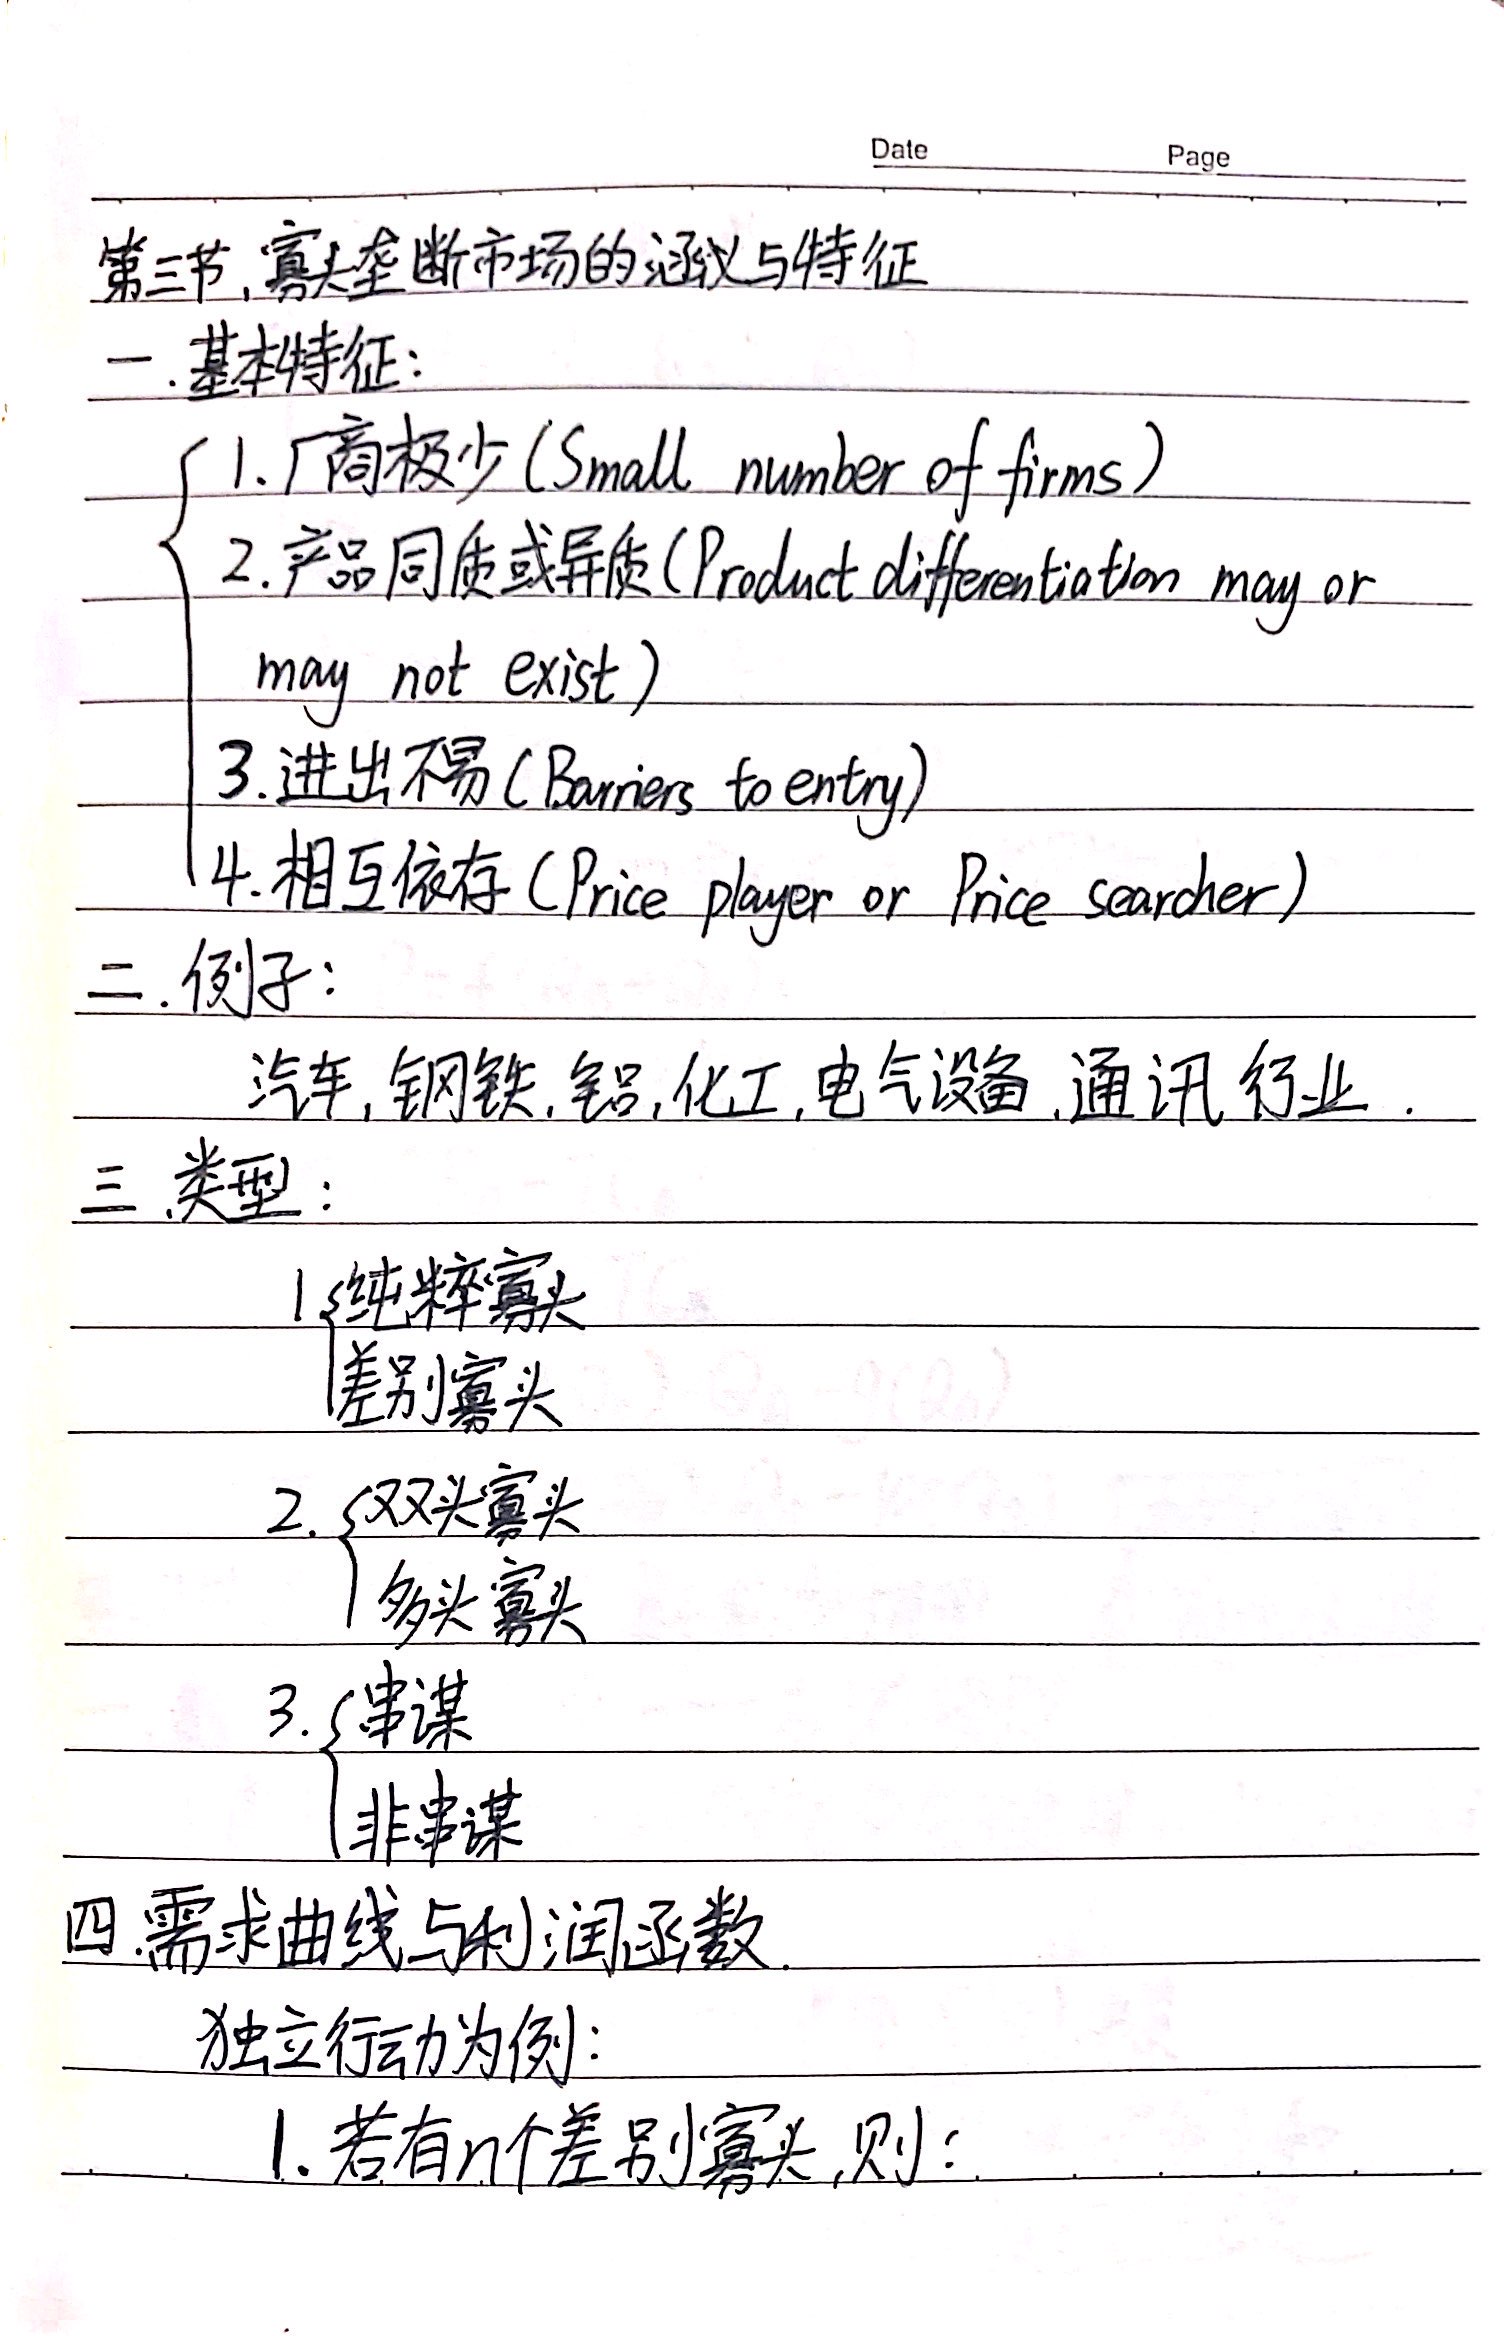 Date Page
第三节,寡头垄断市场的涵义与特征
一.基本特征:
1.厂商极少(Small number of firms)
2.产品同质或异质(Product differentiation may or
may not exist)
3.进出不易(Barriers to entry)
4.相互依存(Price player or Price searcher)
二.例子:
汽车,钢铁,铝,化工,电气设备,通讯行业.
三.类型:
1 纯粹寡头
差别寡头
2.双头寡头
多头寡头
3.串谋
非串谋
四.需求曲线与利润函数.
独立行动为例:
1.若有n个差别寡头,则: